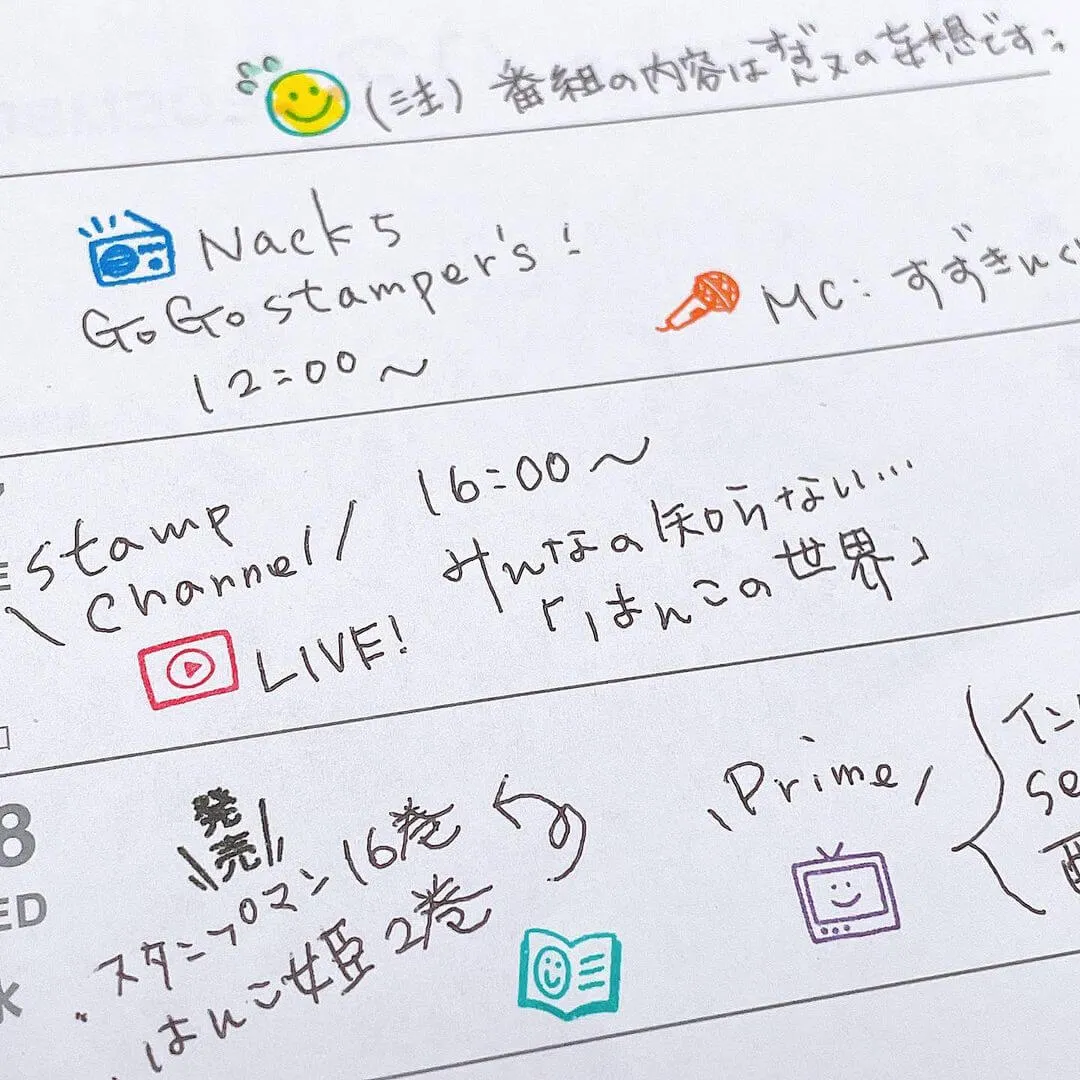 (注) 番組の内容はすずんヌの妄想です。
Nack5
GoGo stamper's!
12:00〜
MC: すずきんぐ
stamp
Channel/
16:00〜
みんなの知らない…
「はんこの世界」
LIVE!
8
ED
発売
スタンプマン 16巻
はんこ姫 2巻
\Prime/
イン
se